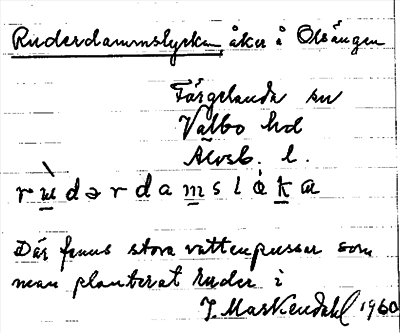 Ruderdammslyckan, åker å Olsängen
Färgelanda sn
Valbo hd
Älvsb. l.
rùdərdamslåka
Där fanns stora vattenpussar som
man planterat ruder i
J. Markendahl 1960